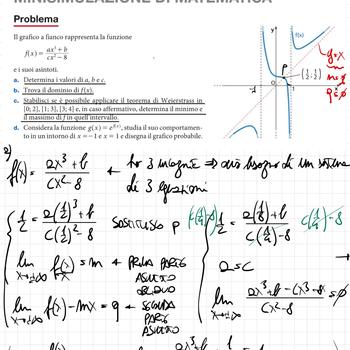 MINISIMULAZIONE DI MATEMATICA
Problema
Il grafico a fianco rappresenta la funzione
f(x) = (ax³ + b)/(cx² − 8)
e i suoi asintoti.
a. Determina i valori di a, b e c.
b. Trova il dominio di f(x).
c. Stabilisci se è possibile applicare il teorema di Weierstrass in
[0; 2], [1; 3], [3; 4] e, in caso affermativo, determina il minimo e
il massimo di f in quell'intervallo.
d. Considera la funzione g(x) = e^f(x), studia il suo comportamento
in un intorno di x = −1 e x = 1 e disegna il grafico probabile.
y
f(x)
P
(1/2; 1/2)
-1
0
1
x
a)
f(x) = (ax³ + b)/(cx² − 8) ← ho 3 incognite ⇒ ho bisogno di un sistema
di 3 equazioni
1/2 = (a(1/2)³ + b)/(c(1/2)² − 8) sostituisco P
1/2 = (a(1/8) + b)/(c(1/4) − 8)
lim x→±∞ f(x)/x = m ← PRIMA PARTE
ASINTOTO
OBLIQUO
a = c
lim x→±∞ f(x) − mx = q ← SECONDA
PARTE
ASINTOTO
lim x→±∞ (ax³ + b − cx³ − 8x)/(cx² − 8) = 0